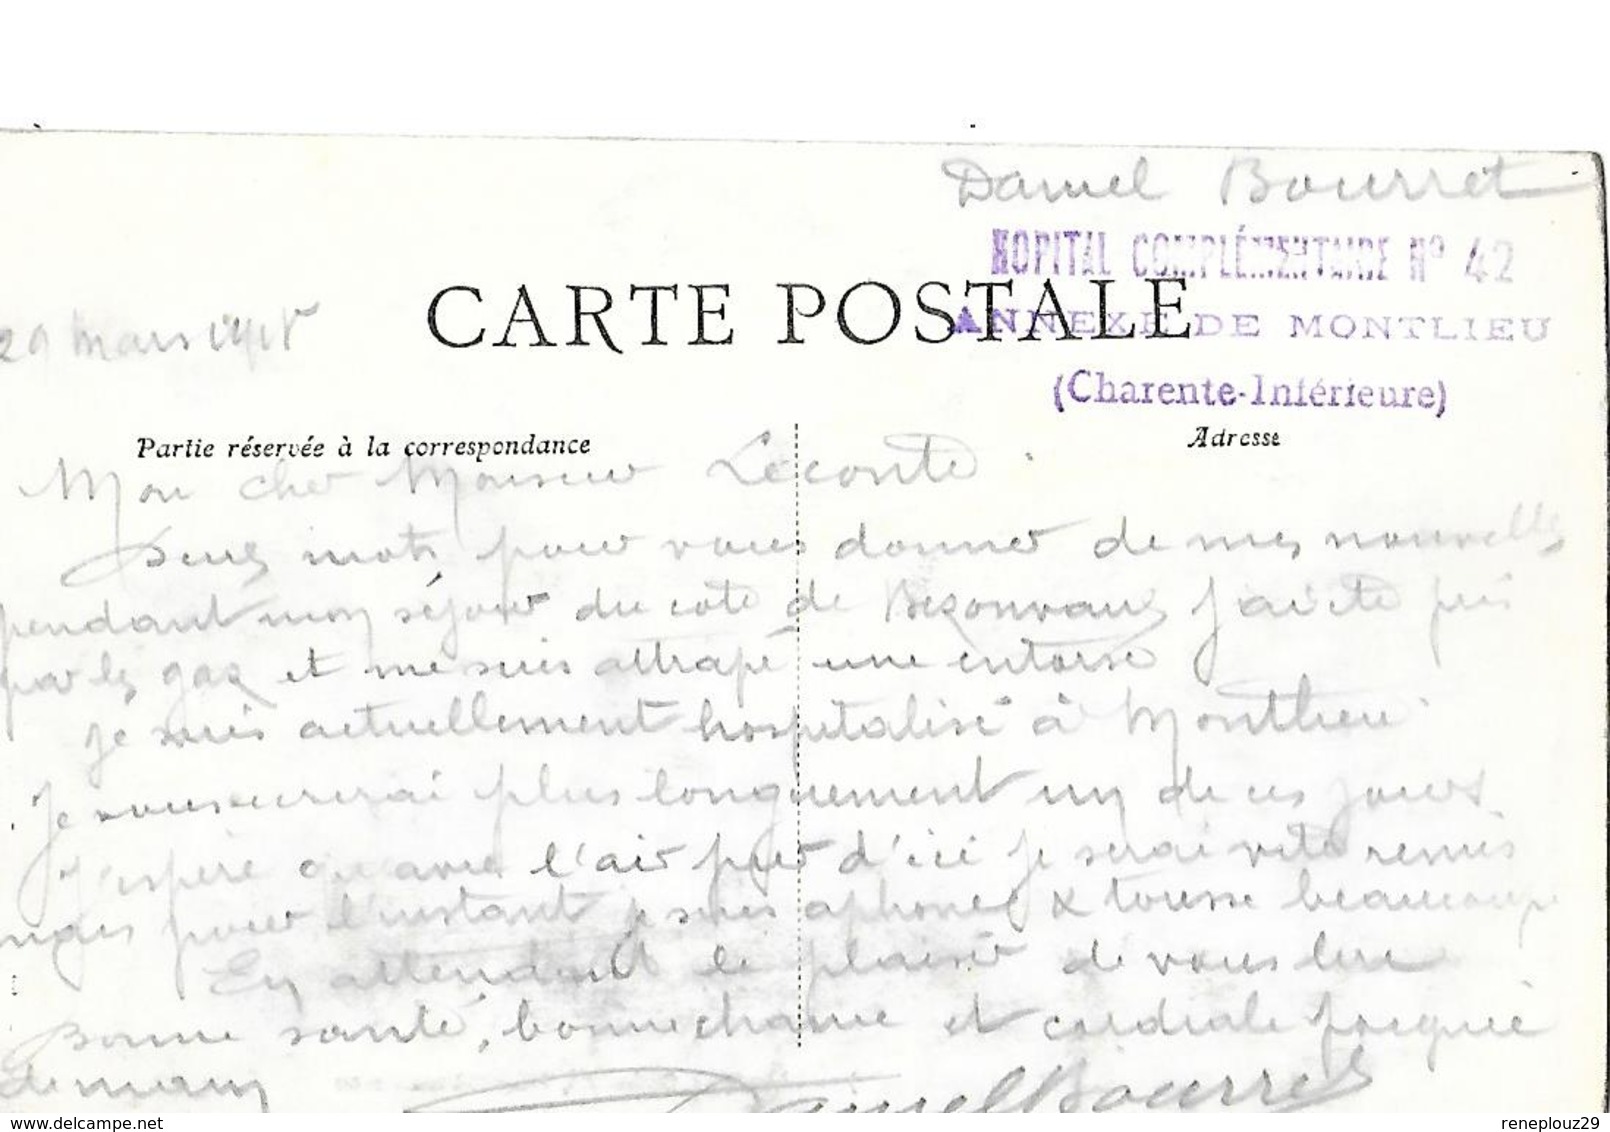 Daniel Bourret
HOPITAL COMPLÉMENTAIRE Nº 42
CARTE POSTALE
ANNEXE DE MONTLIEU
29 mars 1918
(Charente-Inférieure)
Partie réservée à la correspondance
Adresse
Mon cher Monsieur Leconte
Deux mots pour vous donner de mes nouvelles
pendant mon séjour du coté de Bezonvaux j'ai été pris
par les gaz et me suis attrapé une entorse
je suis actuellement hospitalisé à Montlieu
Je vous ecrerai plus longuement un de ces jours
J'espère qu'avec l'air pur d'ici je serai vite remis
mais pour l'instant je suis aphone & tousse beaucoup
En attendant le plaisir de vous lire
Bonne santé, bonne chance et cordiale poignée
de main
Daniel Bourret
www.delcampe.net
reneplouz29